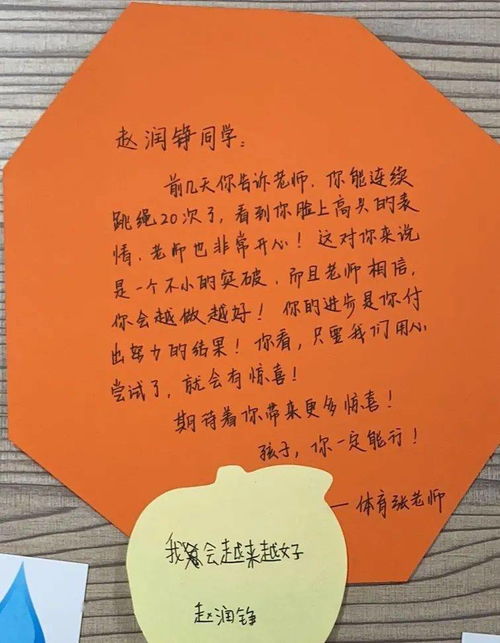 赵润铮同学：
前几天你告诉老师，你能连续
跳绳20次了，看到你脸上高兴的表
情，老师也非常开心！这对你来说
是一个不小的突破，而且老师相信，
你会越做越好！你的进步是你付
出努力的结果！你看，只要我们用心
尝试了，就会有惊喜！
期待着你带来更多惊喜！
孩子，你一定能行！
——体育张老师
我会越来越好
赵润铮